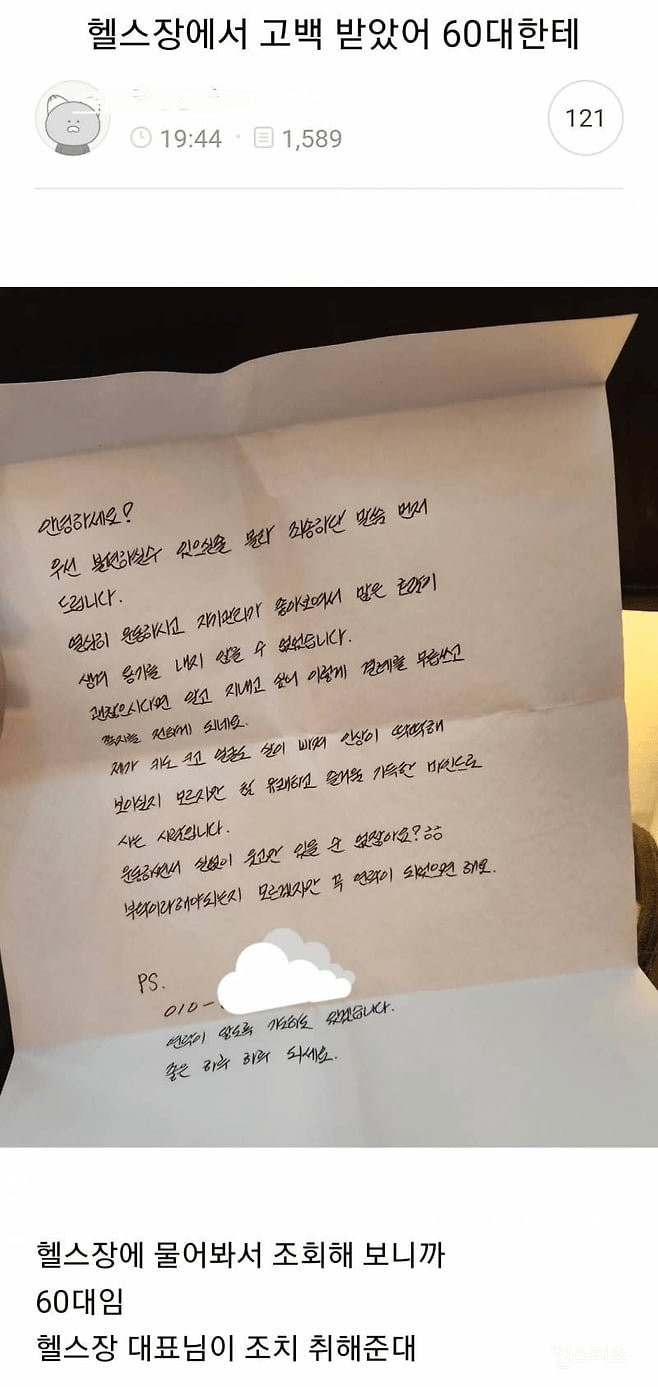 헬스장에서 고백 받았어 60대한테
19:44 1,589
121
안녕하세요?
우선 불편하실수 있으실줄 몰라 죄송하단 말씀 먼저
드립니다.
열심히 운동하시고 자기관리가 좋아보여서 많은 호감이
생겨 용기를 내지 않을 수 없었습니다.
괜찮으시다면 알고 지내고 싶어 이렇게 결례를 무릅쓰고
쪽지를 전하게 되네요.
제가 키도 크고 얼굴도 살이 빠져 인상이 딱딱해
보이실지 모르지만 참 유쾌하고 즐거움 가득한 마인드로
사는 사람입니다.
운동하면서 실없이 웃고만 있을 순 없잖아요? ㅎㅎ
부탁이라해야되는지 모르겠지만 꼭 연락이 되었으면 해요.
PS.
010-
연락이 않도록 기도하도 있겠습니다.
좋은 하루 하루 되세요.
헬스장에 물어봐서 조회해 보니까
60대임
헬스장 대표님이 조치 취해준대
인스티즈